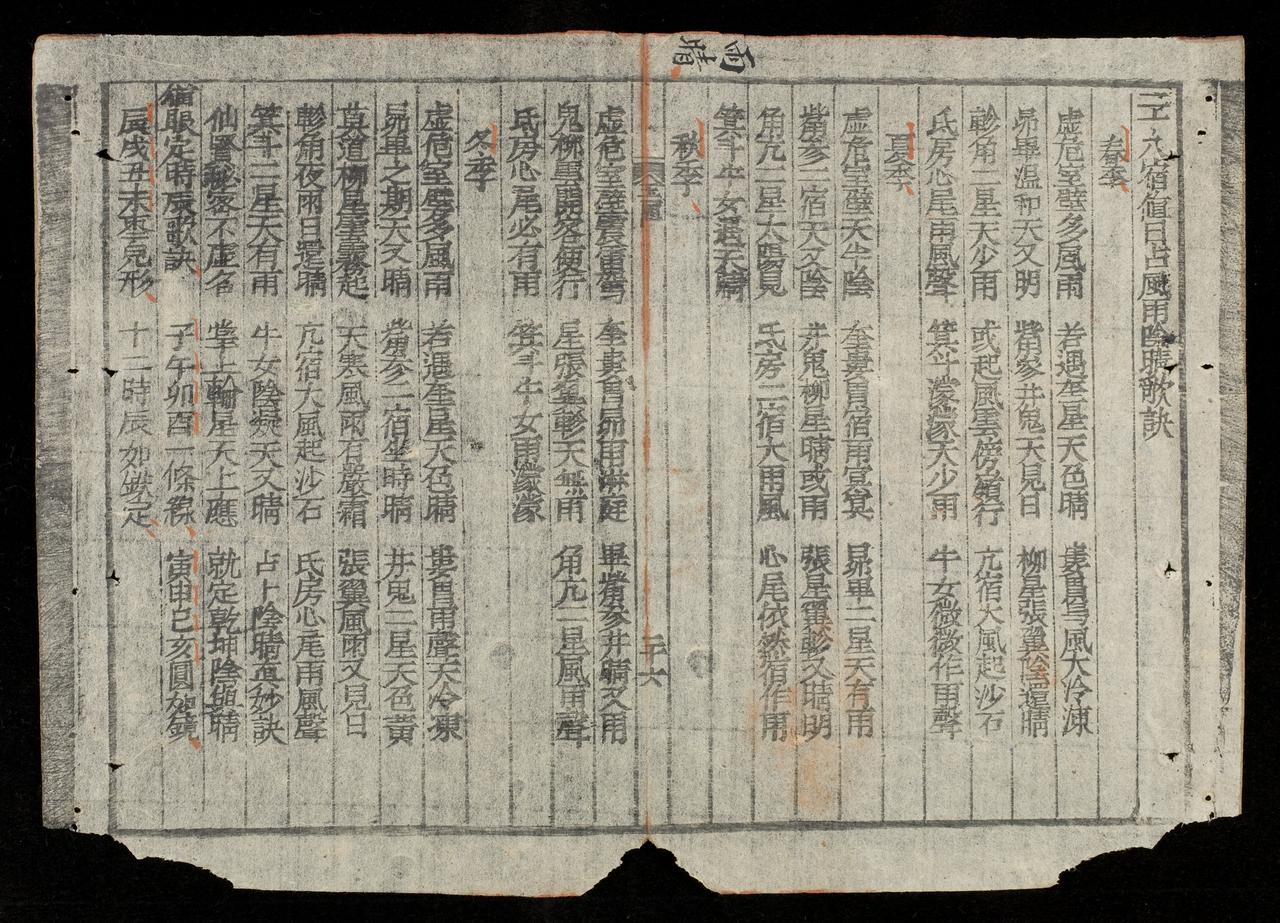 雨晴
二十八宿值日占風雨陰晴歌訣
春季
虛危室壁多風雨 若遇奎星天色晴 婁胃烏風天冷凍
昴畢温和天又明 觜參井鬼天見日 柳星張翼陰還晴
軫角二星天少雨 或起風雲傍嶺行 亢宿大風起沙石
氐房心尾雨風聲 箕斗濛濛天少雨 牛女微微作雨聲
夏季
虛危室壁天半陰 奎婁胃宿雨冥冥 昴畢二星天有雨
觜參二宿天又陰 井鬼柳星晴或雨 張星翼軫又晴明
角亢二星太陽見 氐房二宿大雨風 心尾依然宿作雨
箕斗牛女遇天晴
秋季
二十六
虛危室壁震雷驚 奎婁胃昴雨淋庭 畢觜參井晴又雨
鬼柳雲開客便行 星張翼軫天無雨 角亢二星風雨聲
氐房心尾必有雨 箕斗牛女雨濛濛
冬季
虛危室壁多風雨 若遇奎星天色晴 婁胃雨聲天冷凍
昴畢之期天又晴 觜參二宿坐時晴 井鬼二星天色黃
莫道柳星雲霧起 天寒風雨有嚴霜 張翼風雨又見日
軫角夜雨日還晴 亢宿大風起沙石 氐房心尾雨風聲
箕斗二星天有雨 牛女陰凝天又晴 占卜陰晴真妙訣
仙賢秘密不虛名 掌上輪星天上應 就定乾坤陰與晴
猫眼定時辰歌訣 子午卯酉一條線 寅申巳亥圓如鏡
辰戌丑未棗兒形 十二時辰如鏡定